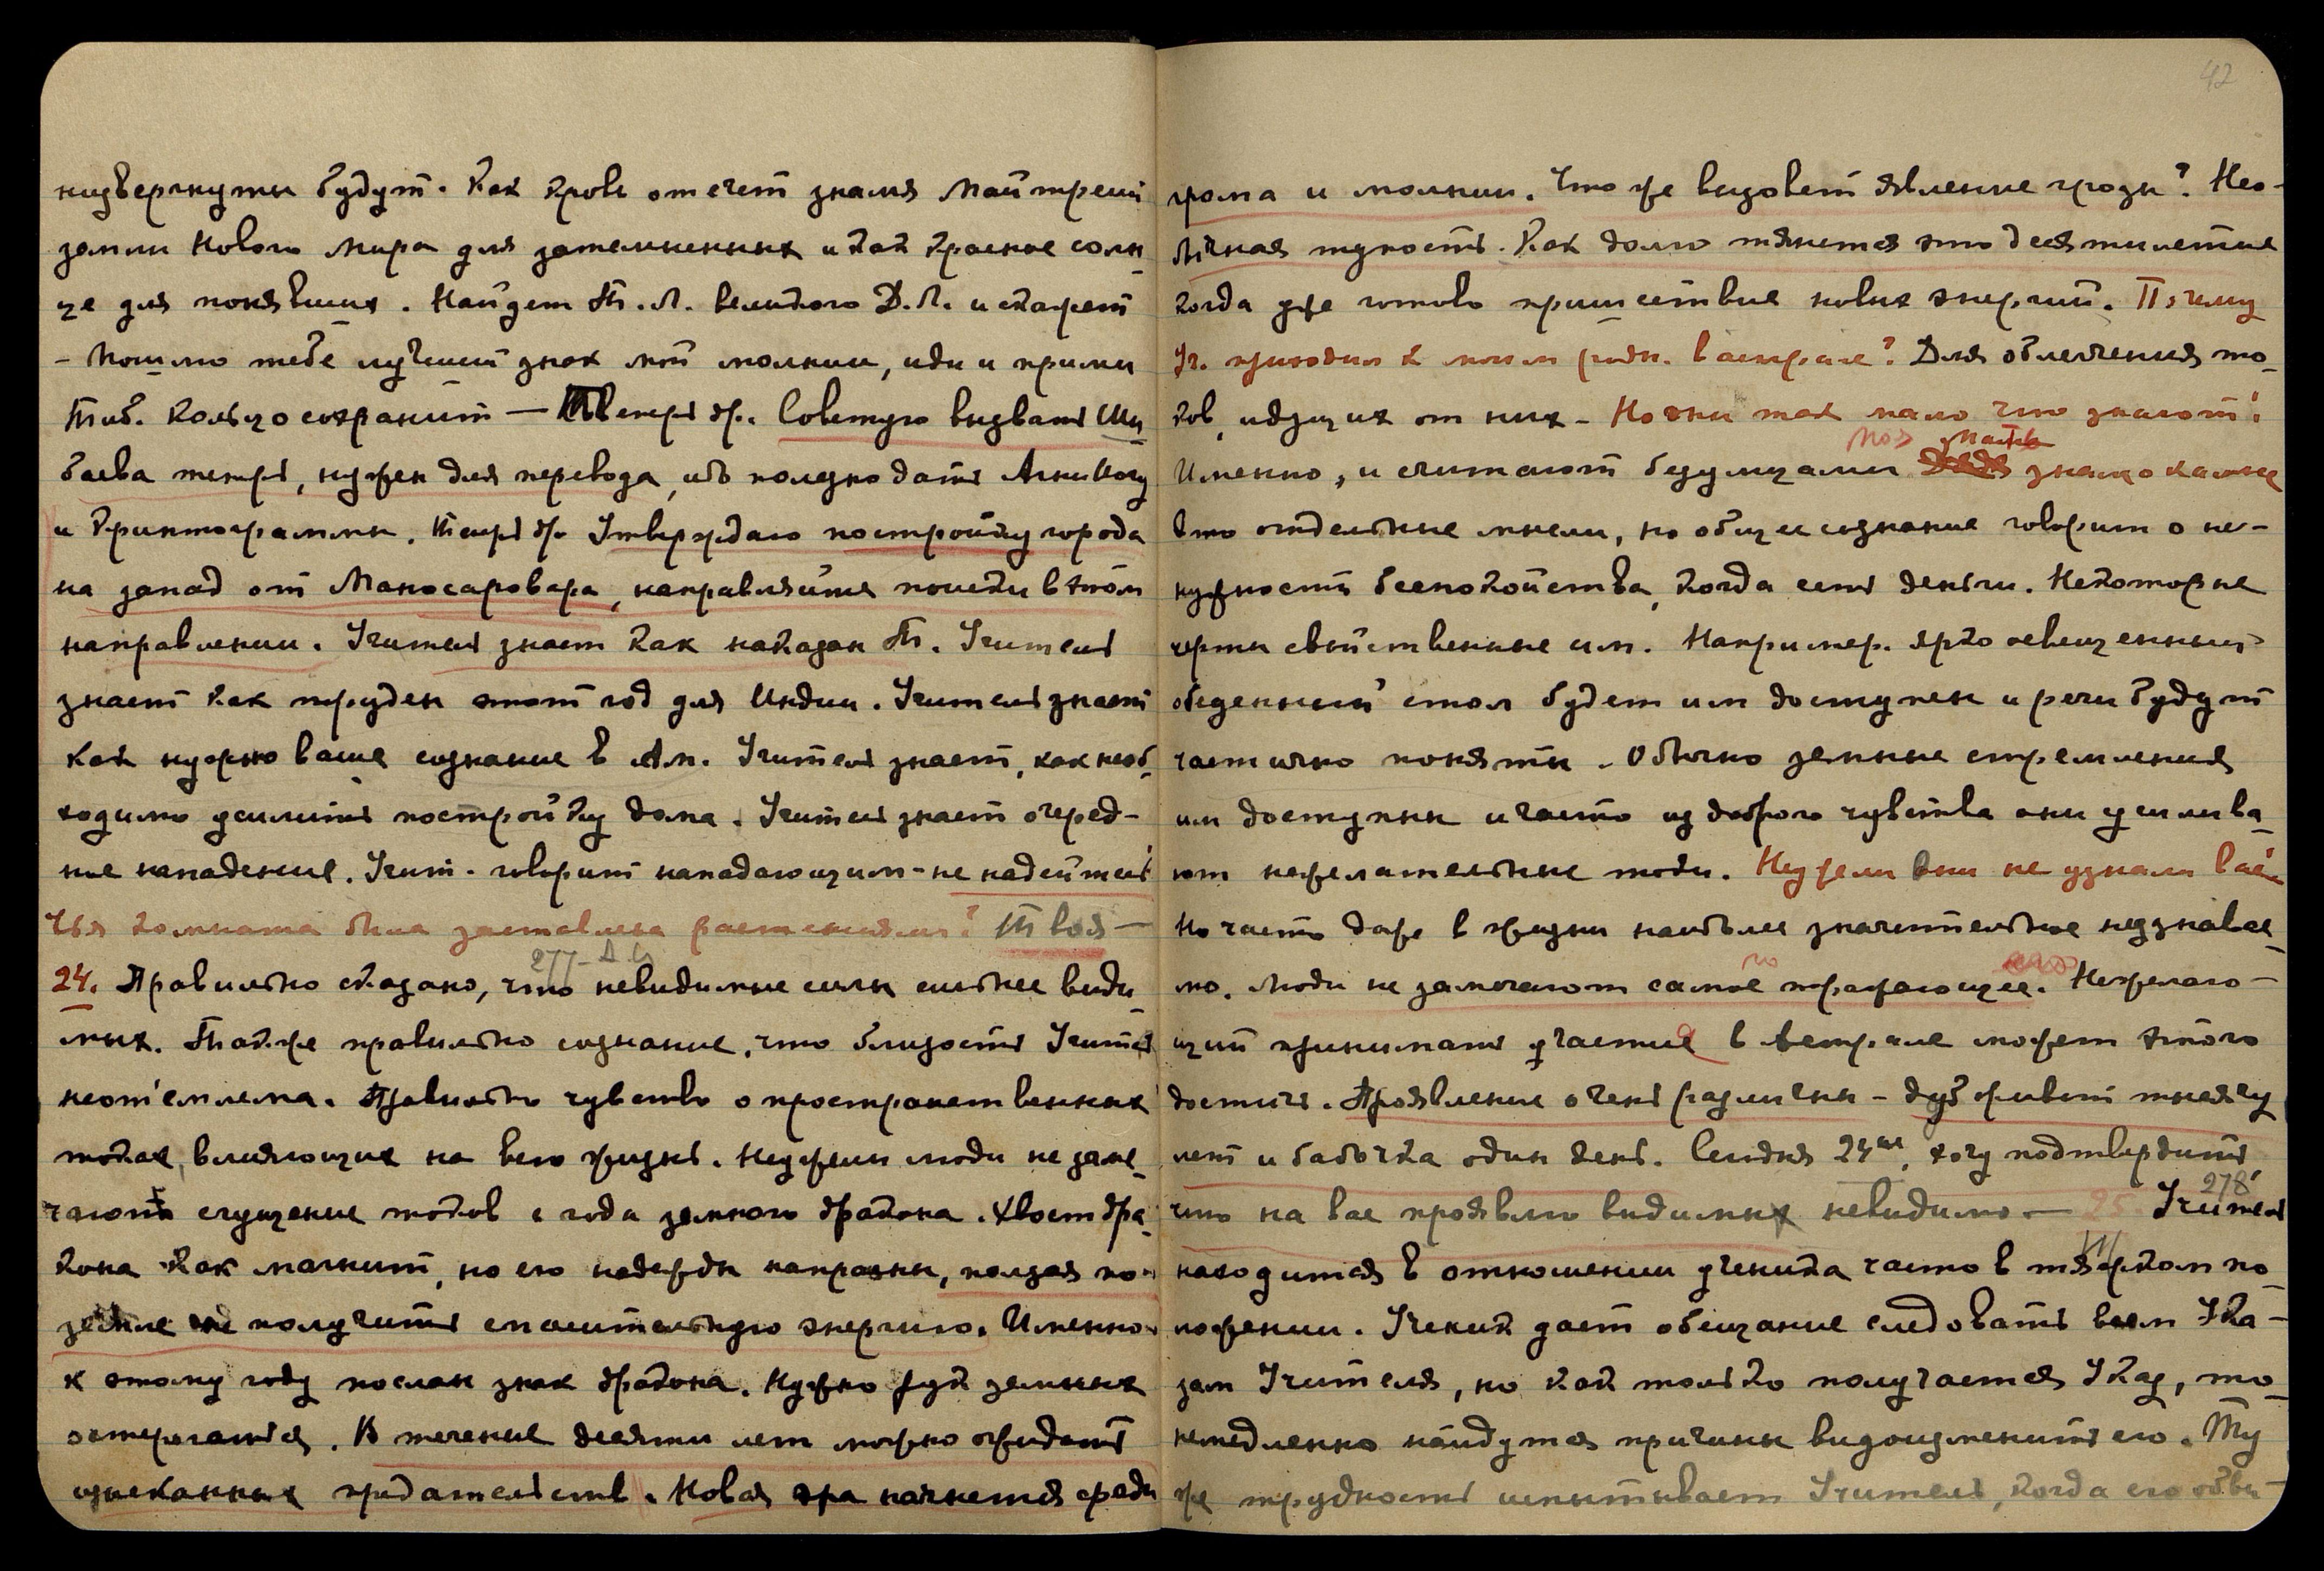 42
низвергнуты будут. Как кровь отечет знамя Майтрейи
земли Нового Мира для затемненных и как красное солн-
це для понявших. Найдет Т.Л. великого Д.Л. и скажет
– Пошлю тебе лучший знак мой молнии, иди и прими
Тиб. кольцо сохранит — Теперь др. Советую вызвать Ши-
баева теперь, нужен для перевода, ибо полезно дать Агни Йогу
и Криптограммы. Теперь др. Утверждаю постройку города
на запад от Маносаровара, направляйте поиски в этом
направлении. Учитель знает как наказан Т. Учитель
знает как труден этот год для Индии. Учитель знает
как нужно ваше сознание в Ам. Учитель знает, как необ-
ходимо усилить постройку дома. Учитель знает очеред-
ные нападения. Учит. говорит нападающим – не надейтесь
Чья комната была заставлена растениями? Твоя —
277 – А.Й.
24. Правильно сказано, что невидимые силы сильнее види-
мых. Также правильно сознание, что близость Учителя
неотъемлема. Правильно чувство о пространственных
токах, влияющих на всю жизнь. Неужели люди не заме-
чают сгущение токов с года земного дракона. Хвост дра-
кона как магнит, но его надежды напрасны, ползая по
земле не получить спасительную энергию. Именно
к этому году послан знак дракона. Нужно рук земных
остерегаться. В течение десяти лет можно ожидать
изысканных предательств. Новая эра начнется среди
грома и молнии. Что же вызовет явление грозы? Нео-
бычная тупость. Как долго тянется это десятилетие
когда уже готово пришествие новых энергий. Почему
Уч. приходил к моим родн. в астрале? Для облегчения то-
ков, идущих от них – Но они так мало что знают!
моя мать
Именно, и считают безумцами знаю о камне
это отдельные мысли, но общее сознание говорит о не-
нужности беспокойства, когда есть деньги. Некоторые
черты свойственные им. Например. ярко освещенный
обеденный стол будет им доступен и речи будут
частично поняты. Обычно земные стремления
им доступны и часто из доброго чувства они усилива-
ют нежелательные токи. Неужели они не узнали Вас!
Но часто даже в жизни наиболее значительное неузнавае-
мо. Люди не замечают самое поражающее. Нежелаю-
щий принимать участия в Астрале может этого
достичь. Проявления очень различны – дуб живет тысячу
лет и бабочка один день. Сегодня 24ое, хочу подтвердить
что на вас проявлю видимых невидимо. — 25. Учитель
278
находится в отношении ученика часто в тяжком по-
ложении. Ученик дает обещание следовать всем Ука-
зам Учителя, но как только получается Указ, то
немедленно найдутся причины видоизменить его. Ту
же трудность испытывает Учитель, когда его обви-